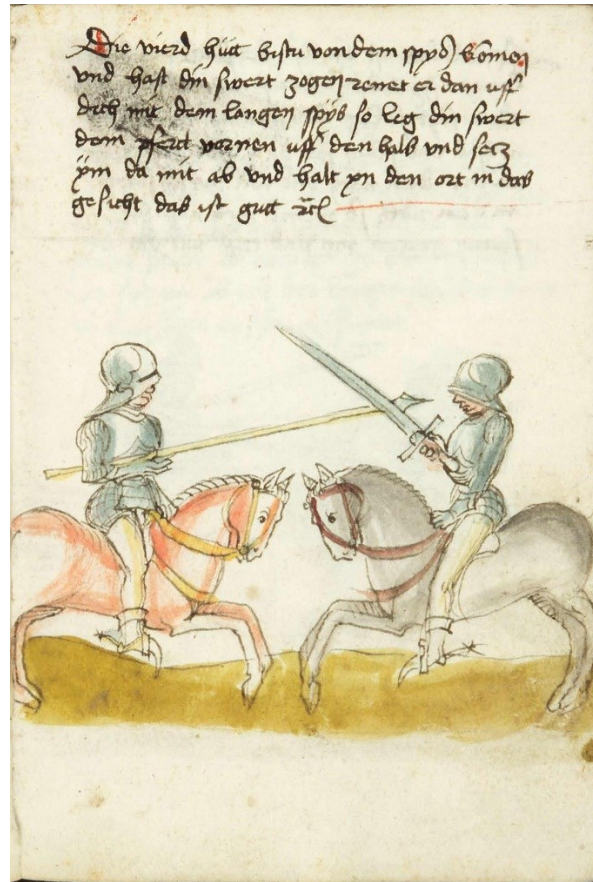 Die vierd hütt bistu von dem spyß komen
vnd hast din swert zogen renet er dan uff
dich mit dem langen spyß so leg din swert
dem pferct vornen uff den halß vnd secz
ym da mit ab vnd halt yn den ort in das
gesicht das ist gutt